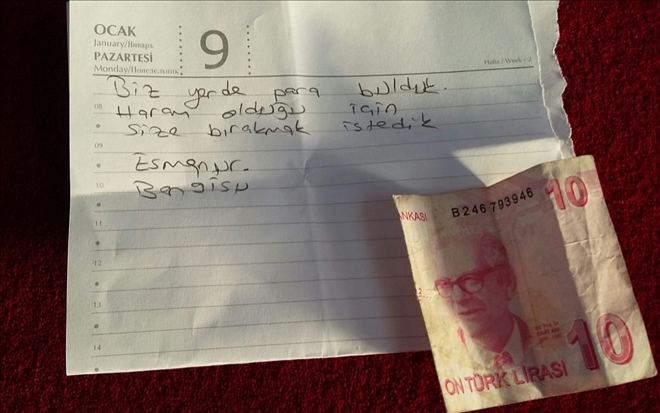 OCAK
January/Январь
PAZARTESİ
Monday/Понедельник
9
Hafta / Week - 2
Biz yerde para bulduk.
08 Haram olduğu için
size bırakmak istedik
09
Esmanur.
10 Bengisu
11
12
13
14
ANKASI
B246 793946
10
10
ON TÜRK LİRASI